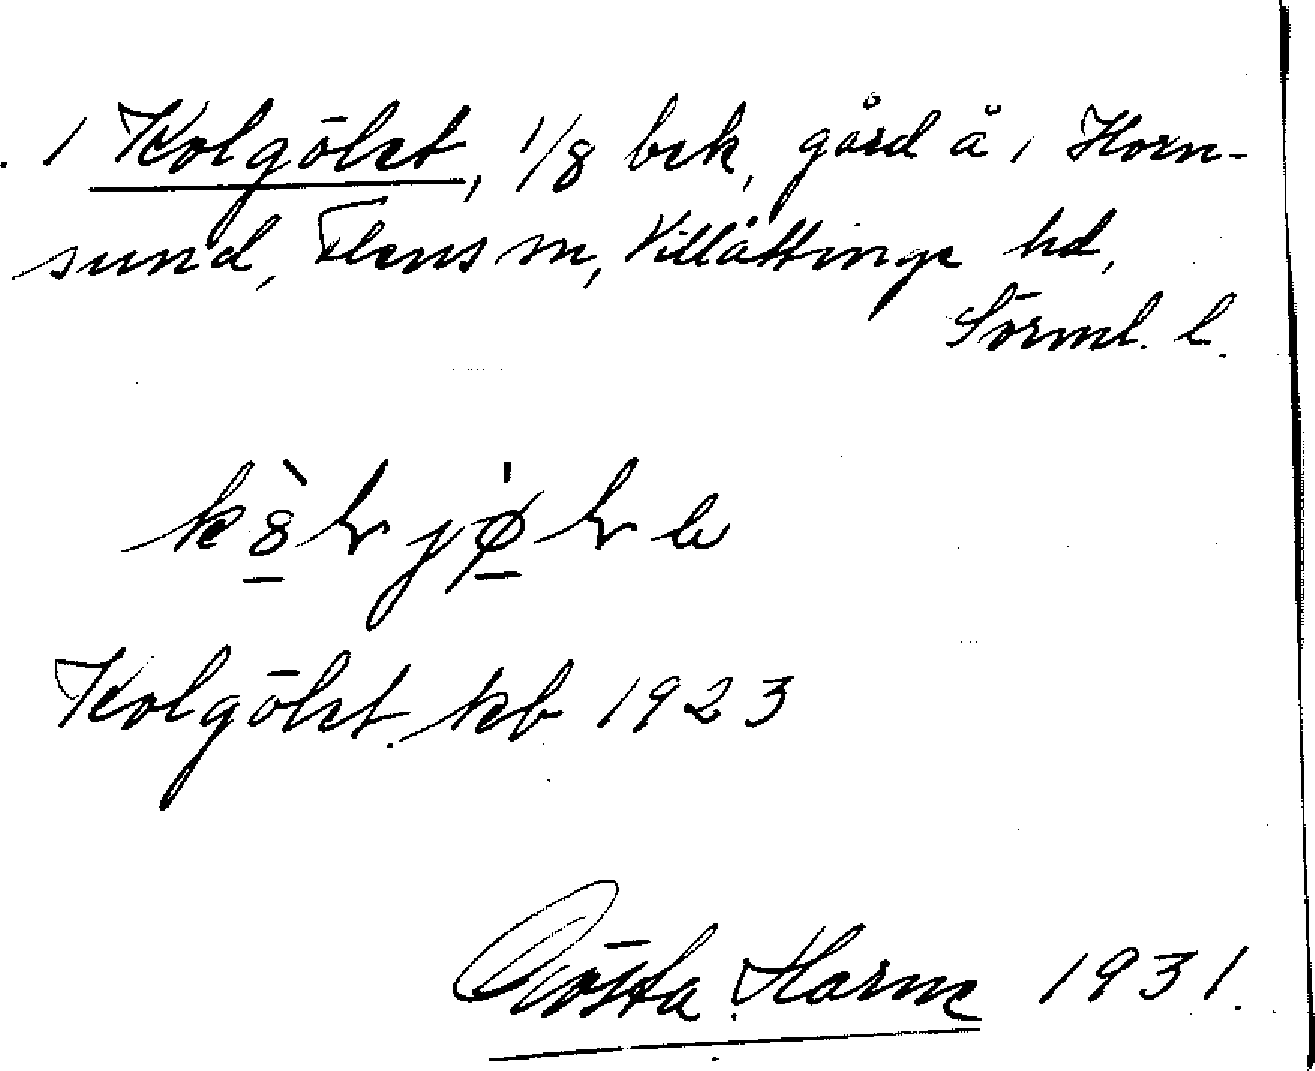 1 Kolgölet, 1/8 bek, gård å 1 Horn-
sund, Flens sn, Villåttinge hd,
Sörml. l.
Kolgölet. kb 1923
Gösta Harne 1931.